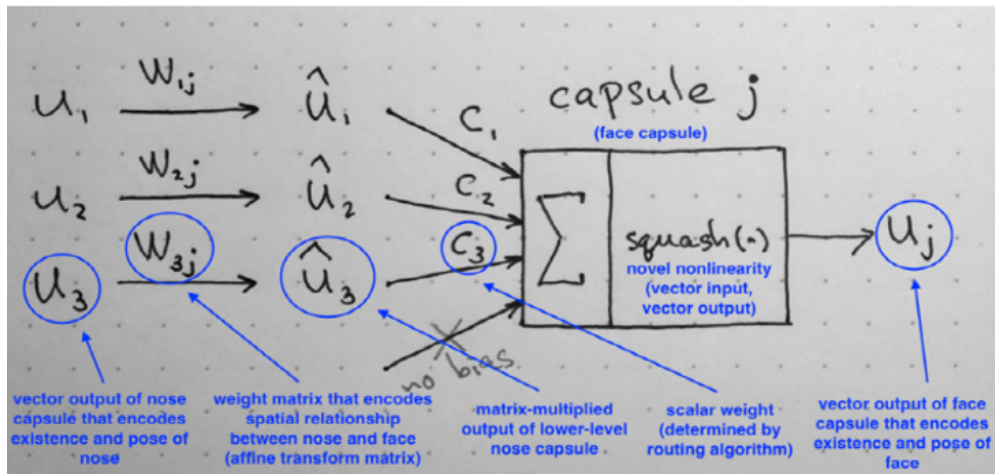 W1j
u1
û1
C1
capsule j
(face capsule)
W2j
u2
û2
C2
Σ
squash(·)
novel nonlinearity
(vector input,
vector output)
Uj
W3j
U3
û3
C3
no bias
vector output of nose
capsule that encodes
existence and pose of
nose
weight matrix that encodes
spatial relationship
between nose and face
(affine transform matrix)
matrix-multiplied
output of lower-level
nose capsule
scalar weight
(determined by
routing algorithm)
vector output of face
capsule that encodes
existence and pose of
face